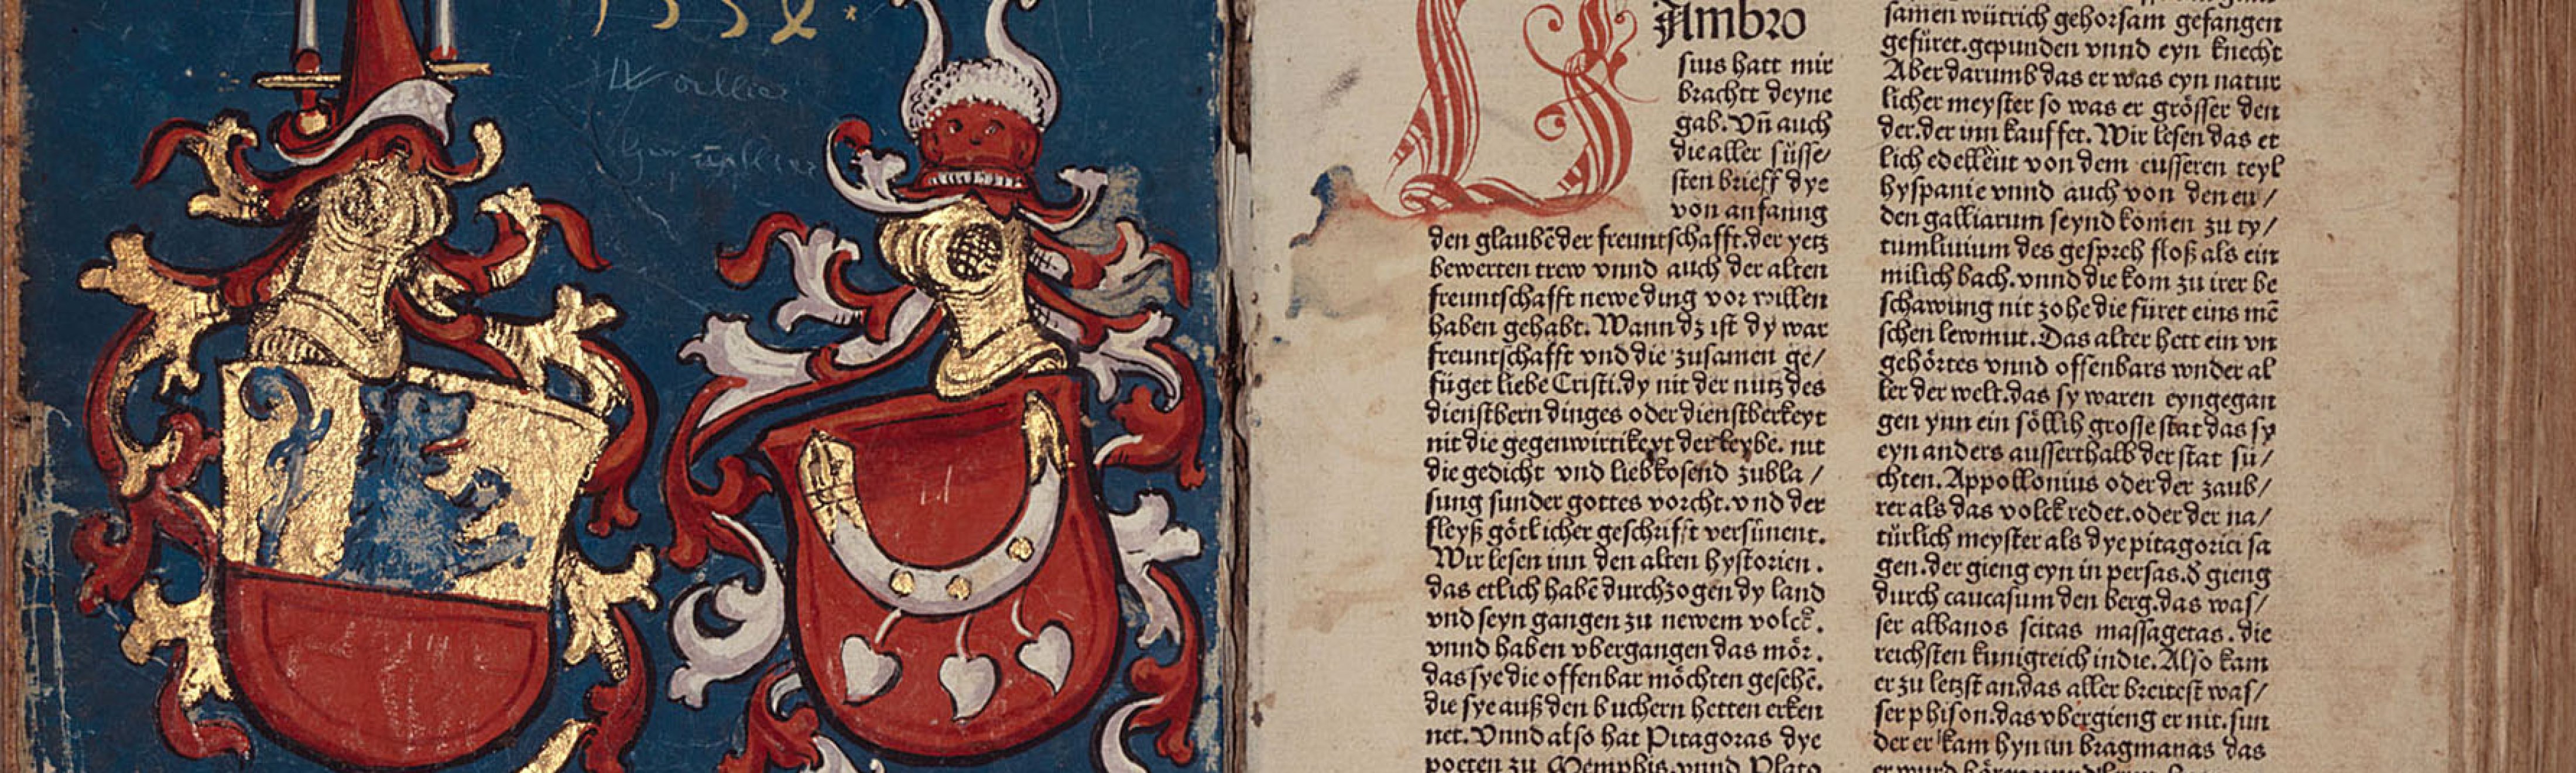 1 5 5 8
Ambro
sius hatt mir
bracht deyne
gab. Vn̄ auch
die aller süsse/
sten brieff dye
von anfanng
den glaubē der freuntschafft. der yetz
bewerten trew vnnd auch der alten
freuntschafft newe ding vor willen
haben gehabt. Wann dz ist dy war
freuntschafft vnd die zusamen ge/
füget liebe Cristi. dy nit der nutz des
dienstbern dinges oder dienstberkeyt
nit die gegenwirtikeyt der leybe. nit
die gedicht vnd liebkosend zubla/
sung sunder gottes vorcht. vnd der
fleyß götlicher geschrifft versünent.
Wir lesen inn den alten hystorien.
das etlich habē durchzogen dy land
vnd seyn gangen zu newem volck.
vnnd haben vbergangen das mör.
das sye die offenbar möchten gesehē.
die sye auß den buchern hetten erken
net. Vnnd also hat Pitagoras dye
poeten zu Memphis. vnnd Plato
samen wütrich gehorsam gefangen
gefüret. gepunden vnnd eyn knecht
Aber darumb das er was eyn natur
licher meyster so was er grösser den
der. der inn kauffet. Wir lesen das et
lich edellëut von dem eusseren teyl
hyspanie vnnd auch von den en/
den galliarum seynd komen zu ty/
tumliuium des gesprech floß als ein
milich bach. vnnd die kom zu irer be
schawung nit zohe die füret eins mē
schen lewmut. Das alter hett ein vn
gehörtes vnnd offenbars wnder al
ler der welt. das sy waren eyngegan
gen ynn ein söllich grosse stat das sy
eyn anders ausserthalb der stat sü/
chten. Appollonius oder der zaub/
rer als das volck redet. oder der na/
türlich meyster als dye pitagorici sa
gen. der gieng eyn in persas. d̄ gieng
durch caucasum den berg. das was/
ser albanos scitas massagetas. die
reichsten kunigreich indie. Also kam
er zu letzst an. das aller breitest was/
ser phison. das vbergieng er nit. sun
der er kam hyn in bragmanas das